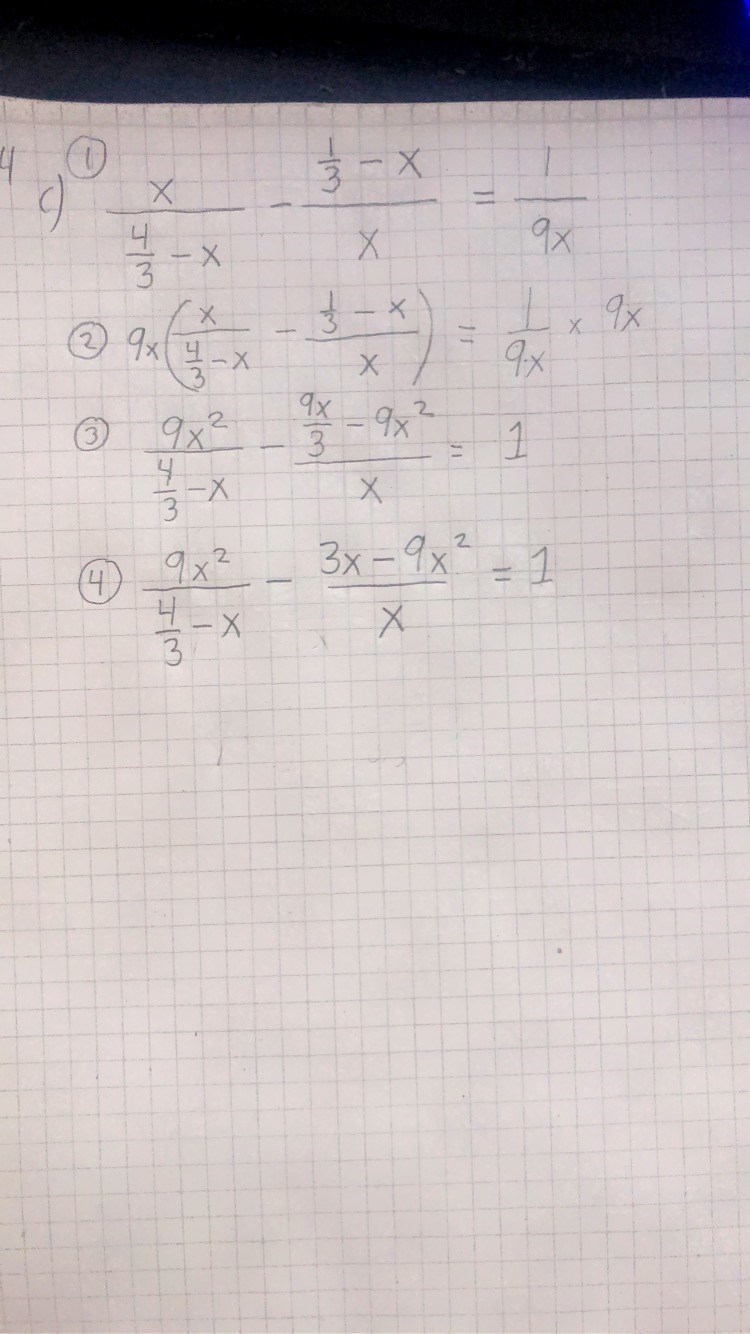 4 c) ① x/(4/3 - x) - (1/3 - x)/x = 1/(9x)
② 9x(x/(4/3 - x) - (1/3 - x)/x) = 1/(9x) × 9x
③ 9x²/(4/3 - x) - (9x/3 - 9x²)/x = 1
④ 9x²/(4/3 - x) - (3x - 9x²)/x = 1